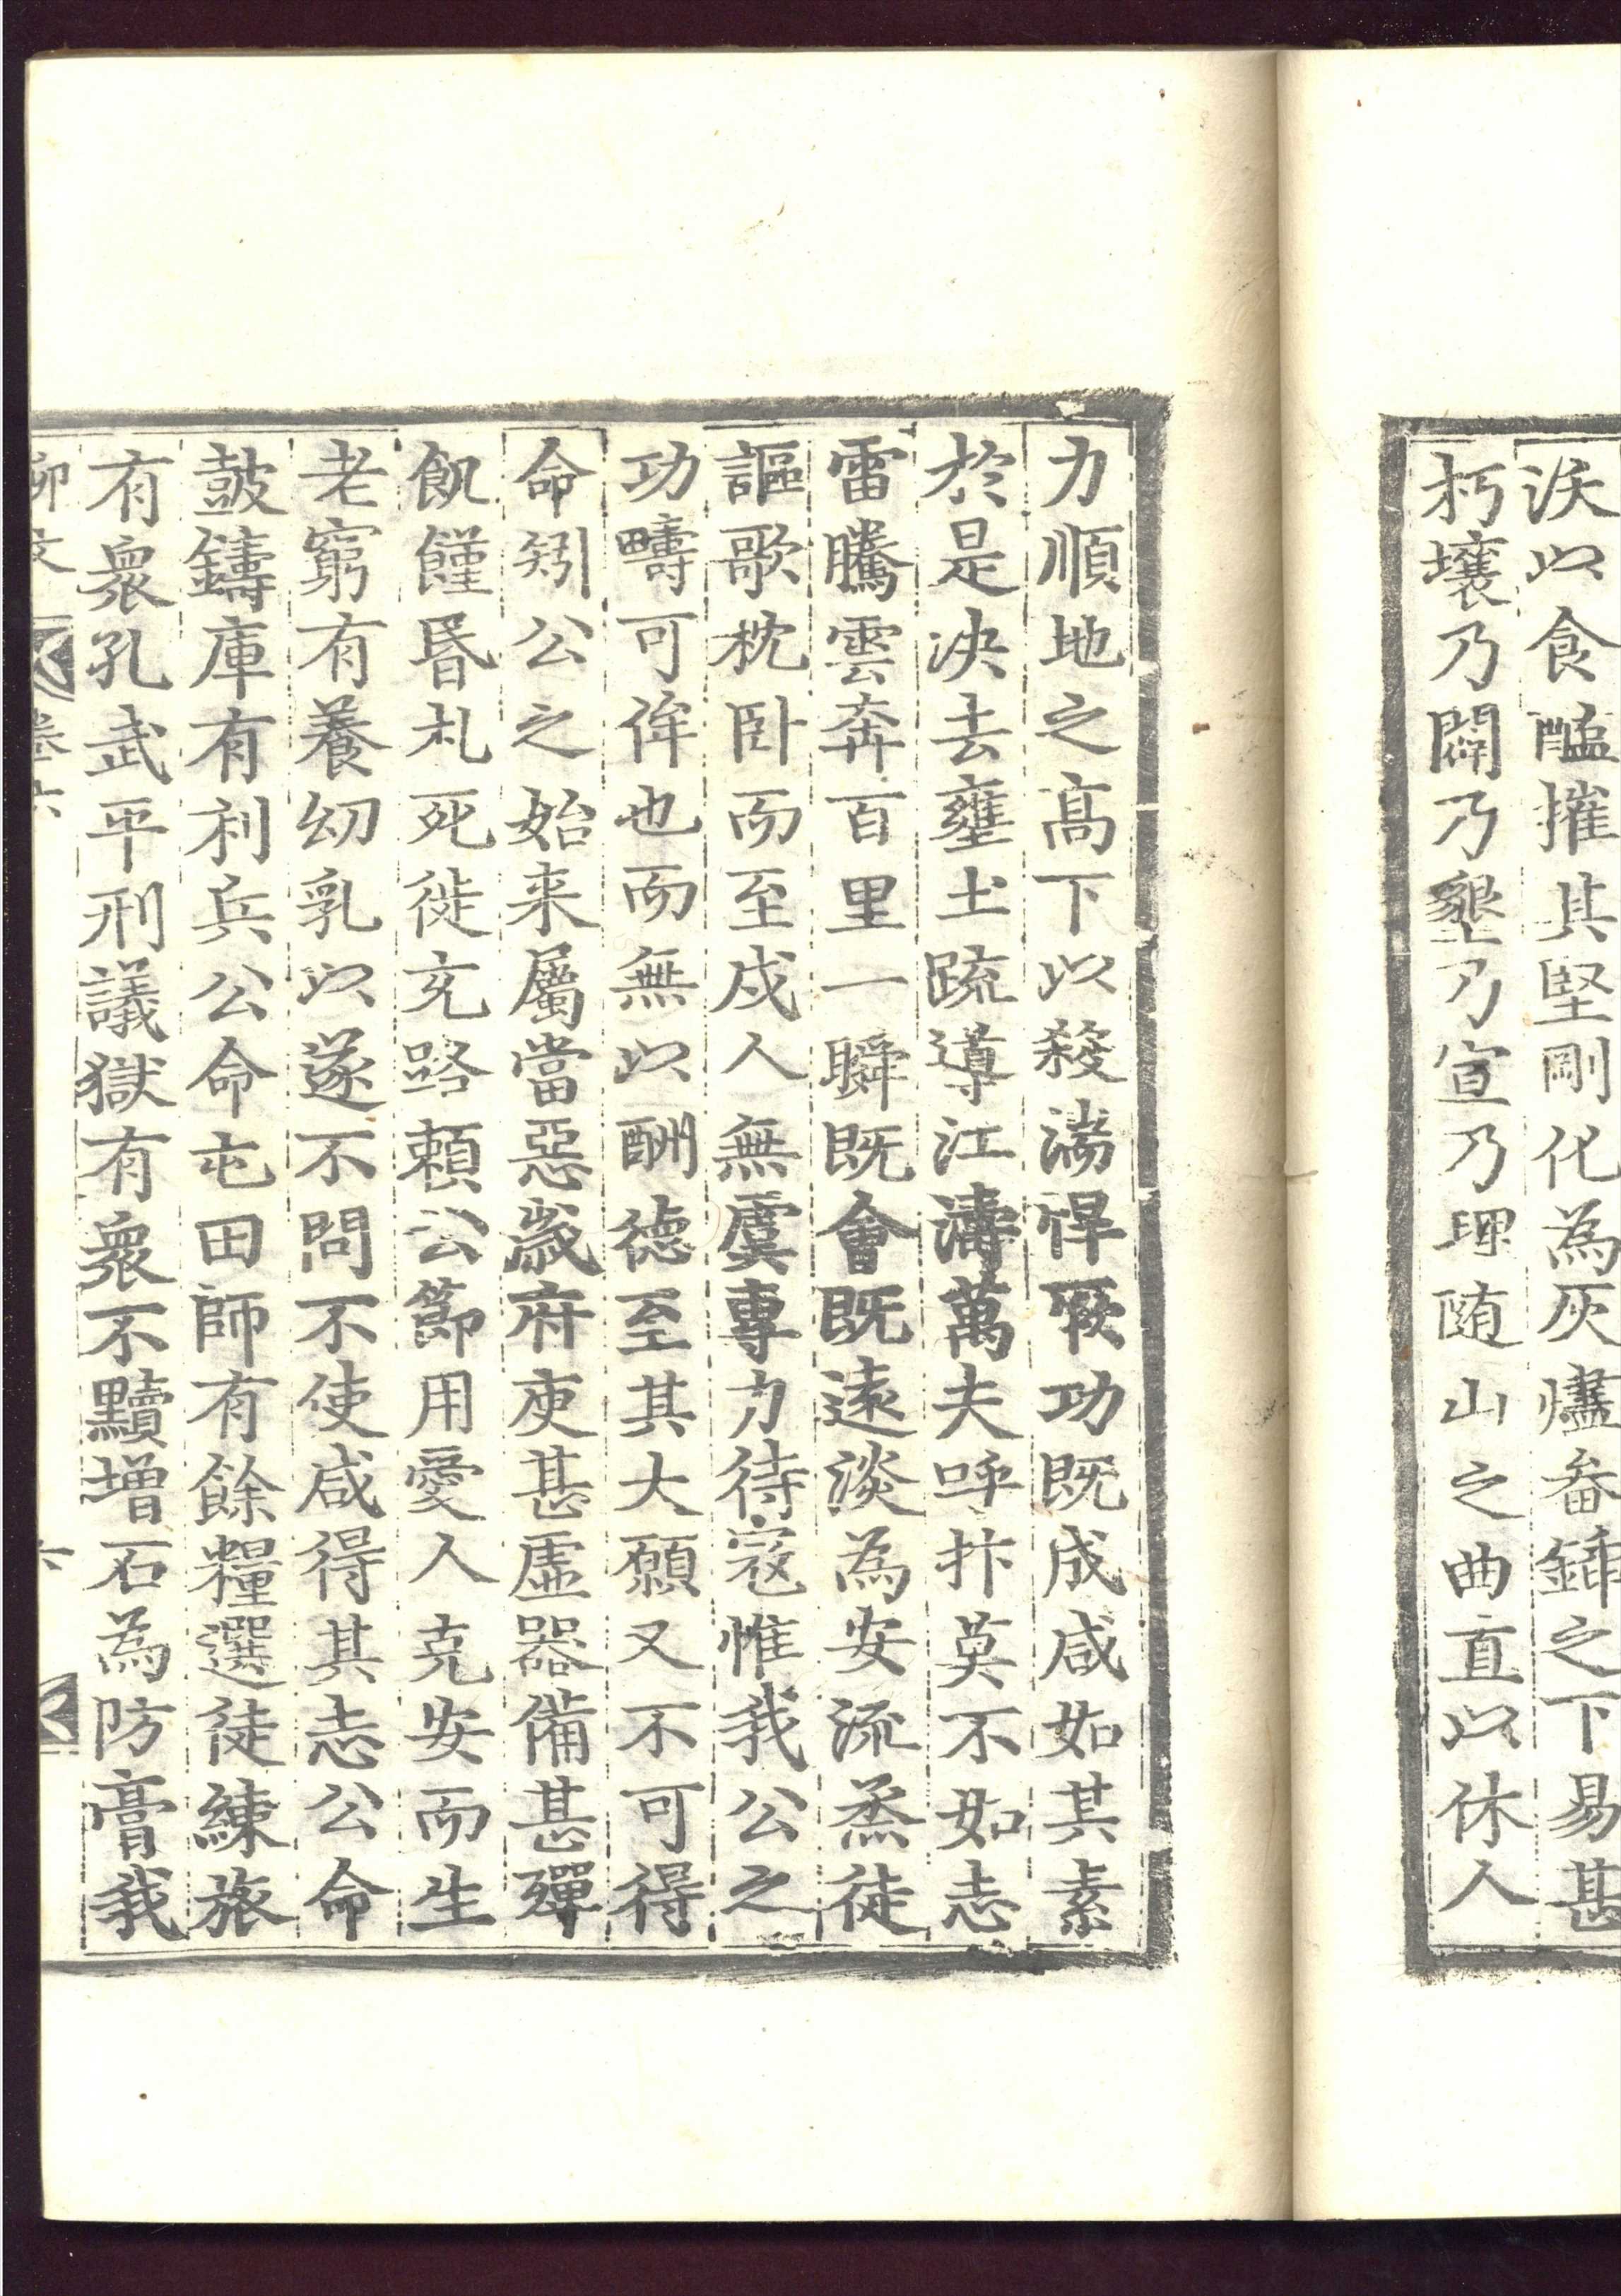 沃以食醯摧其堅剛化為灰燼畚鍤之下易甚
朽壤乃闢乃墾乃宣乃理随山之曲直以休人
力順地之髙下以殺湍悍厥功既成咸如其素
於是決去壅土䟽導江濤萬夫呼抃莫不如志
雷騰雲奔百里一瞬既會既遠淡為安流烝徒
謳歌枕卧而至戍人無虞專力待寇惟我公之
功疇可侔也而無以酬德至其大願又不可得
命矧公之始来屬當惡歲府庾甚虛器備甚殫
飢饉昬札死徙充路頼公節用愛人克安而生
老窮有養幼乳以遂不問不使咸得其志公命
鼓鑄庫有利兵公命屯田師有餘糧選徒練旅
有衆孔武平刑議獄有衆不黷增石為防膏我
柳文 卷六 六